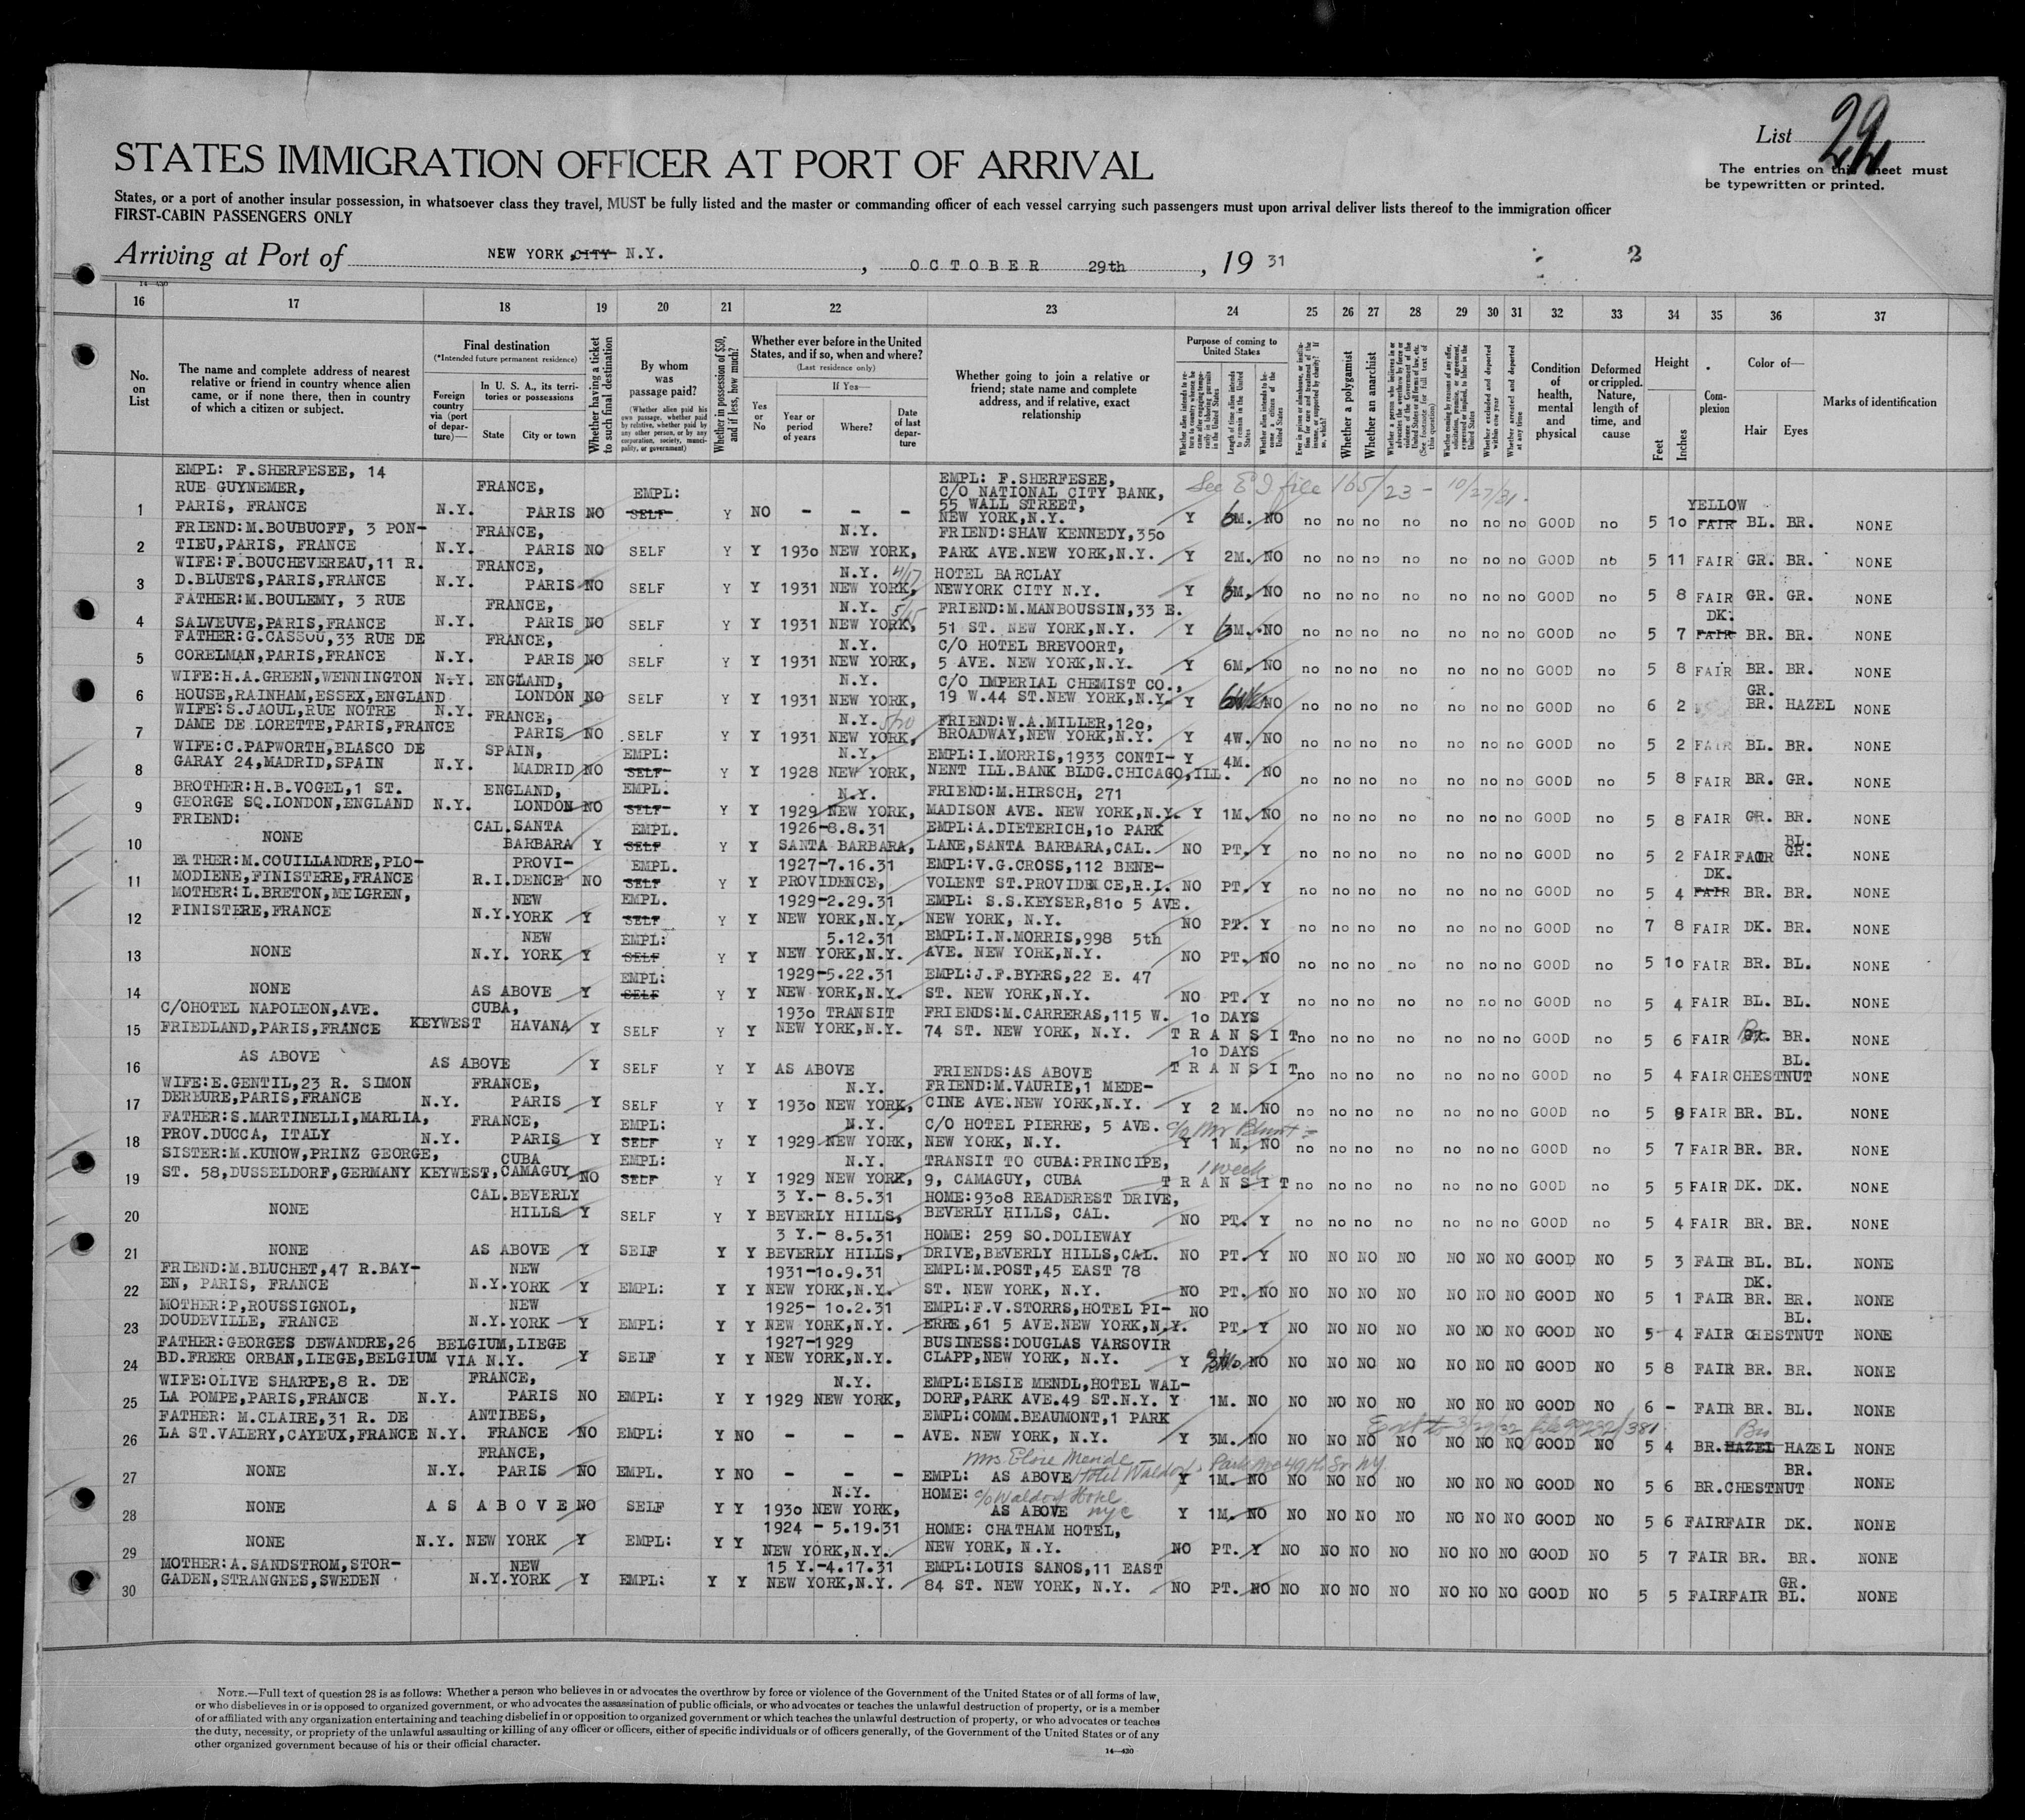 List 22
STATES IMMIGRATION OFFICER AT PORT OF ARRIVAL
The entries on this sheet must
be typewritten or printed.
States, or a port of another insular possession, in whatsoever class they travel, MUST be fully listed and the master or commanding officer of each vessel carrying such passengers must upon arrival deliver lists thereof to the immigration officer
FIRST-CABIN PASSENGERS ONLY
Arriving at Port of NEW YORK, CITY N.Y. , OCTOBER 29th , 19 31 2
14—430
16 17 18 19 20 21 22 23 24 25 26 27 28 29 30 31 32 33 34 35 36 37
No. on List
The name and complete address of nearest relative or friend in country whence alien came, or if none there, then in country of which a citizen or subject.
Final destination
(*Intended future permanent residence)
Foreign country via (port of departure)—
In U. S. A., its territories or possessions
State City or town
Whether having a ticket to such final destination
By whom was passage paid?
(Whether alien paid his own passage, whether paid by relative, whether paid by any other person, or by any corporation, society, municipality, or government)
Whether in possession of $50, and if less, how much?
Whether ever before in the United States, and if so, when and where?
(Last residence only)
Yes or No
If Yes—
Year or period of years
Where?
Date of last departure
Whether going to join a relative or friend; state name and complete address, and if relative, exact relationship
Purpose of coming to United States
Length of time alien intends to remain in the United States
Whether alien intends to become a citizen of the United States
Whether a polygamist
Whether an anarchist
Whether excluded and deported within one year
Whether arrested and deported at any time
Condition of health, mental and physical
Deformed or crippled. Nature, length of time, and cause
Height
Feet Inches
Complexion
Color of—
Hair Eyes
Marks of identification
See E I file 165/23 - 10/27/31.
1 EMPL: F.SHERFESEE, 14 RUE GUYNEMER, PARIS, FRANCE N.Y. FRANCE, PARIS NO EMPL: SELF Y NO - - - EMPL: F.SHERFESEE, C/O NATIONAL CITY BANK, 55 WALL STREET, NEW YORK,N.Y. Y 6M. NO no no no no no no no GOOD no 5 10 YELLOW FAIR BL. BR. NONE
2 FRIEND:M.BOUBUOFF, 3 PONTIEU,PARIS, FRANCE N.Y. FRANCE, PARIS NO SELF Y Y 1930 NEW YORK, N.Y. FRIEND:SHAW KENNEDY,350 PARK AVE.NEW YORK,N.Y. Y 2M. NO no no no no no no no GOOD no 5 11 FAIR GR. BR. NONE
3 WIFE:F.BOUCHEVEREAU,11 R. D.BLUETS,PARIS,FRANCE N.Y. FRANCE, PARIS NO SELF Y Y 1931 NEW YORK, N.Y. 4/17 HOTEL BARCLAY NEWYORK CITY N.Y. Y M. NO no no no no no no no GOOD no 5 8 FAIR GR. GR. NONE
4 FATHER:M.BOULEMY, 3 RUE SALVEUVE,PARIS,FRANCE N.Y. FRANCE, PARIS NO SELF Y Y 1931 NEW YORK, N.Y. 5/15 FRIEND:M.MANBOUSSIN,33 E. 51 ST. NEW YORK,N.Y. Y M. NO no no no no no no no GOOD no 5 7 DK. FAIR BR. BR. NONE
5 FATHER:G.CASSOU,33 RUE DE CORELMAN,PARIS,FRANCE N.Y. FRANCE, PARIS NO SELF Y Y 1931 NEW YORK, N.Y. C/O HOTEL BREVOORT, 5 AVE. NEW YORK,N.Y. Y 6M. NO no no no no no no no GOOD no 5 8 FAIR BR. BR. NONE
6 WIFE:H.A.GREEN,WENNINGTON HOUSE,RAINHAM,ESSEX,ENGLAND N.Y. ENGLAND, LONDON NO SELF Y Y 1931 NEW YORK, N.Y. C/O IMPERIAL CHEMIST CO., 19 W.44 ST.NEW YORK,N.Y. Y NO no no no no no no no GOOD no 6 2 GR. BR. HAZEL NONE
7 WIFE:S.JAOUL,RUE NOTRE DAME DE LORETTE,PARIS,FRANCE N.Y. FRANCE, PARIS NO SELF Y Y 1931 NEW YORK, N.Y. 5/20 FRIEND:W.A.MILLER,120, BROADWAY,NEW YORK,N.Y. Y 4W. NO no no no no no no no GOOD no 5 2 FAIR BL. BR. NONE
8 WIFE:C.PAPWORTH,BLASCO DE GARAY 24,MADRID,SPAIN N.Y. SPAIN, MADRID NO EMPL: SELF Y Y 1928 NEW YORK, N.Y. EMPL:I.MORRIS,1933 CONTINENT ILL.BANK BLDG.CHICAGO,ILL. Y 4M. NO no no no no no no no GOOD no 5 8 FAIR BR. GR. NONE
9 BROTHER:H.B.VOGEL,1 ST. GEORGE SQ.LONDON,ENGLAND N.Y. ENGLAND, LONDON NO EMPL. SELF Y Y 1929 NEW YORK, N.Y. FRIEND:M.HIRSCH, 271 MADISON AVE. NEW YORK,N.Y. Y 1M. NO no no no no no no no GOOD no 5 8 FAIR GR. BR. NONE
10 FRIEND: NONE CAL. SANTA BARBARA Y EMPL. SELF Y Y 1926-8.8.31 SANTA BARBARA, EMPL:A.DIETERICH,10 PARK LANE,SANTA BARBARA,CAL. NO PT. Y no no no no no no no GOOD no 5 2 FAIR FAIR BL. GR. NONE
11 FATHER:M.COUILLANDRE,PLOMODIENE,FINISTERE,FRANCE R.I. PROVIDENCE NO EMPL. SELF Y Y 1927-7.16.31 PROVIDENCE, EMPL:V.G.CROSS,112 BENEVOLENT ST.PROVIDENCE,R.I. NO PT. Y no no no no no no no GOOD no 5 4 DK. FAIR BR. BR. NONE
12 MOTHER:L.BRETON,MELGREN, FINISTERE,FRANCE N.Y. NEW YORK Y EMPL. SELF Y Y 1929-2.29.31 NEW YORK,N.Y. EMPL: S.S.KEYSER,810 5 AVE. NEW YORK, N.Y. NO PT. Y no no no no no no no GOOD no 7 8 FAIR DK. BR. NONE
13 NONE N.Y. NEW YORK Y EMPL: SELF Y Y 5.12.31 NEW YORK,N.Y. EMPL:I.N.MORRIS,998 5th AVE. NEW YORK,N.Y. NO PT. NO no no no no no no no GOOD no 5 10 FAIR BR. BL. NONE
14 NONE AS ABOVE Y EMPL: SELF Y Y 1929-5.22.31 NEW YORK,N.Y. EMPL:J.F.BYERS,22 E. 47 ST. NEW YORK,N.Y. NO PT. Y no no no no no no no GOOD no 5 4 FAIR BL. BL. NONE
15 C/OHOTEL NAPOLEON,AVE. FRIEDLAND,PARIS,FRANCE KEYWEST CUBA, HAVANA Y SELF Y Y 1930 TRANSIT NEW YORK,N.Y. FRIENDS:M.CARRERAS,115 W. 74 ST. NEW YORK, N.Y. 10 DAYS TRANSIT no no no no no no no GOOD no 5 6 FAIR Br. BR. NONE
16 AS ABOVE AS ABOVE Y SELF Y Y AS ABOVE FRIENDS:AS ABOVE 10 DAYS TRANSIT no no no no no no no GOOD no 5 4 FAIR CHESTNUT BL. NONE
17 WIFE:E.GENTIL,23 R. SIMON DEREURE,PARIS,FRANCE N.Y. FRANCE, PARIS Y SELF Y Y 1930 NEW YORK, N.Y. FRIEND:M.VAURIE,1 MEDECINE AVE.NEW YORK,N.Y. Y 2 M. NO no no no no no no no GOOD no 5 8 FAIR BR. BL. NONE
18 FATHER:S.MARTINELLI,MARLIA, PROV.DUCCA, ITALY N.Y. FRANCE, PARIS Y EMPL: SELF Y Y 1929 NEW YORK, N.Y. C/O HOTEL PIERRE, 5 AVE. NEW YORK, N.Y. c/o Mr Blunt Y 1 M. NO no no no no no no no GOOD no 5 7 FAIR BR. BR. NONE
19 SISTER:M.KUNOW,PRINZ GEORGE, ST. 58,DUSSELDORF,GERMANY KEYWEST, CUBA CAMAGUY NO EMPL: SELF Y Y 1929 NEW YORK, N.Y. TRANSIT TO CUBA:PRINCIPE, 9, CAMAGUY, CUBA 1 week TRANSIT no no no no no no no GOOD no 5 5 FAIR DK. DK. NONE
20 NONE CAL. BEVERLY HILLS Y SELF Y Y 3 Y.- 8.5.31 BEVERLY HILLS, HOME:9308 READEREST DRIVE, BEVERLY HILLS, CAL. NO PT. Y no no no no no no no GOOD no 5 4 FAIR BR. BR. NONE
21 NONE AS ABOVE Y SELF Y Y 3 Y.- 8.5.31 BEVERLY HILLS, HOME: 259 SO.DOLIEWAY DRIVE,BEVERLY HILLS,CAL. NO PT. Y NO NO NO NO NO NO NO GOOD NO 5 3 FAIR BL. BL. NONE
22 FRIEND:M.BLUCHET,47 R.BAYEN, PARIS, FRANCE N.Y. NEW YORK Y EMPL: Y Y 1931-10.9.31 NEW YORK,N.Y. EMPL:M.POST,45 EAST 78 ST. NEW YORK, N.Y. NO PT. NO NO NO NO NO NO NO NO GOOD NO 5 1 FAIR DK. BR. BR. NONE
23 MOTHER:P,ROUSSIGNOL, DOUDEVILLE, FRANCE N.Y. NEW YORK Y EMPL: Y Y 1925- 10.2.31 NEW YORK,N.Y. EMPL:F.V.STORRS,HOTEL PIERRE,61 5 AVE.NEW YORK,N.Y. NO PT. Y NO NO NO NO NO NO NO GOOD NO 5 4 FAIR CHESTNUT BL. NONE
24 FATHER:GEORGES DEWANDRE,26 BD.FRERE ORBAN,LIEGE,BELGIUM BELGIUM,LIEGE VIA N.Y. Y SELF Y Y 1927-1929 NEW YORK,N.Y. BUSINESS:DOUGLAS VARSOVIR CLAPP,NEW YORK, N.Y. Y NO NO NO NO NO NO NO NO GOOD NO 5 8 FAIR BR. BR. NONE
25 WIFE:OLIVE SHARPE,8 R. DE LA POMPE,PARIS,FRANCE N.Y. FRANCE, PARIS NO EMPL: Y Y 1929 NEW YORK, N.Y. EMPL:ELSIE MENDL,HOTEL WALDORF,PARK AVE.49 ST.N.Y. Y 1M. NO NO NO NO NO NO NO NO GOOD NO 6 - FAIR BR. BL. NONE
26 FATHER: M.CLAIRE,31 R. DE LA ST.VALERY,CAYEUX,FRANCE N.Y. ANTIBES, FRANCE NO EMPL: Y NO - - - EMPL:COMM.BEAUMONT,1 PARK AVE. NEW YORK, N.Y. Y 3M. NO NO NO NO NO NO NO NO GOOD NO 5 4 BR. Br HAZEL HAZEL NONE
27 NONE N.Y. FRANCE, PARIS NO EMPL. Y NO - - - EMPL: AS ABOVE Mrs Elsie Mende Hotel Waldorf, Park Ave 49th St. NY Y 1M. NO NO NO NO NO NO NO NO GOOD NO 5 6 BR. CHESTNUT BR. NONE
28 NONE AS ABOVE NO SELF Y Y 1930 NEW YORK, N.Y. HOME: AS ABOVE c/o Waldorf Hotel nyc Y 1M. NO NO NO NO NO NO NO NO GOOD NO 5 6 FAIR FAIR DK. NONE
29 NONE N.Y. NEW YORK Y EMPL: Y Y 1924 - 5.19.31 NEW YORK,N.Y. HOME: CHATHAM HOTEL, NEW YORK, N.Y. NO PT. Y NO NO NO NO NO NO NO GOOD NO 5 7 FAIR BR. BR. NONE
30 MOTHER:A.SANDSTROM,STORGADEN,STRANGNES,SWEDEN N.Y. NEW YORK Y EMPL: Y Y 15 Y.-4.17.31 NEW YORK,N.Y. EMPL:LOUIS SANOS,11 EAST 84 ST. NEW YORK, N.Y. NO PT. NO NO NO NO NO NO NO NO GOOD NO 5 5 FAIR FAIR GR. BL. NONE
NOTE.—Full text of question 28 is as follows: Whether a person who believes in or advocates the overthrow by force or violence of the Government of the United States or of all forms of law,
or who disbelieves in or is opposed to organized government, or who advocates the assassination of public officials, or who advocates or teaches the unlawful destruction of property, or is a member
of or affiliated with any organization entertaining and teaching disbelief in or opposition to organized government or which teaches the unlawful destruction of property, or who advocates or teaches
the duty, necessity, or propriety of the unlawful assaulting or killing of any officer or officers, either of specific individuals or of officers generally, of the Government of the United States or of any
other organized government because of his or their official character.
14—430